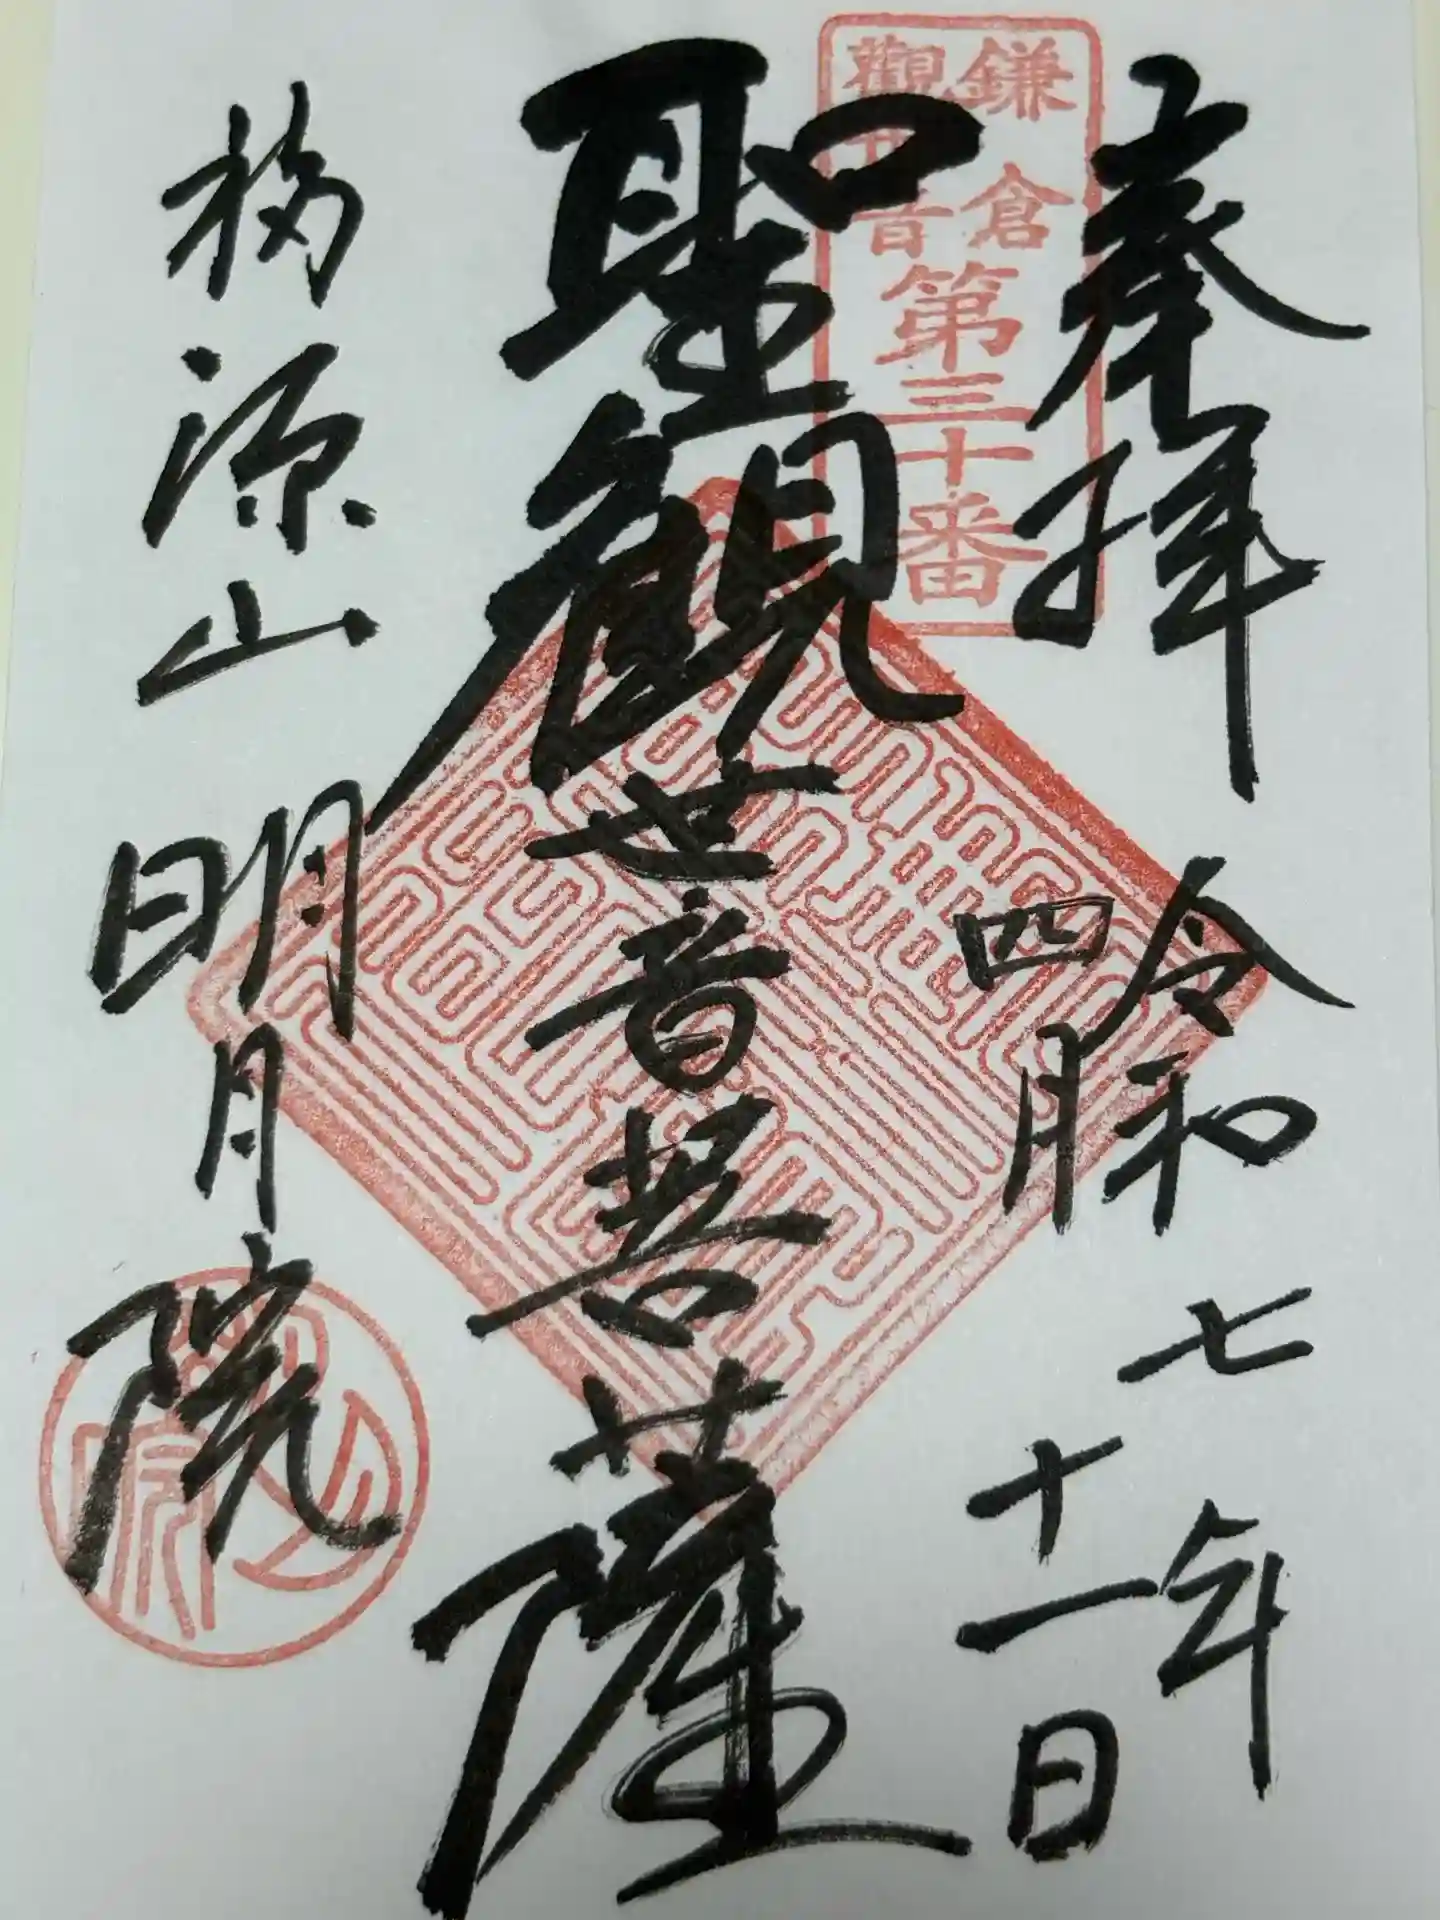 奉拝
令和七年
四月十一日
鎌倉
觀世音
第三十番
聖観世音菩薩
福源山
明月院